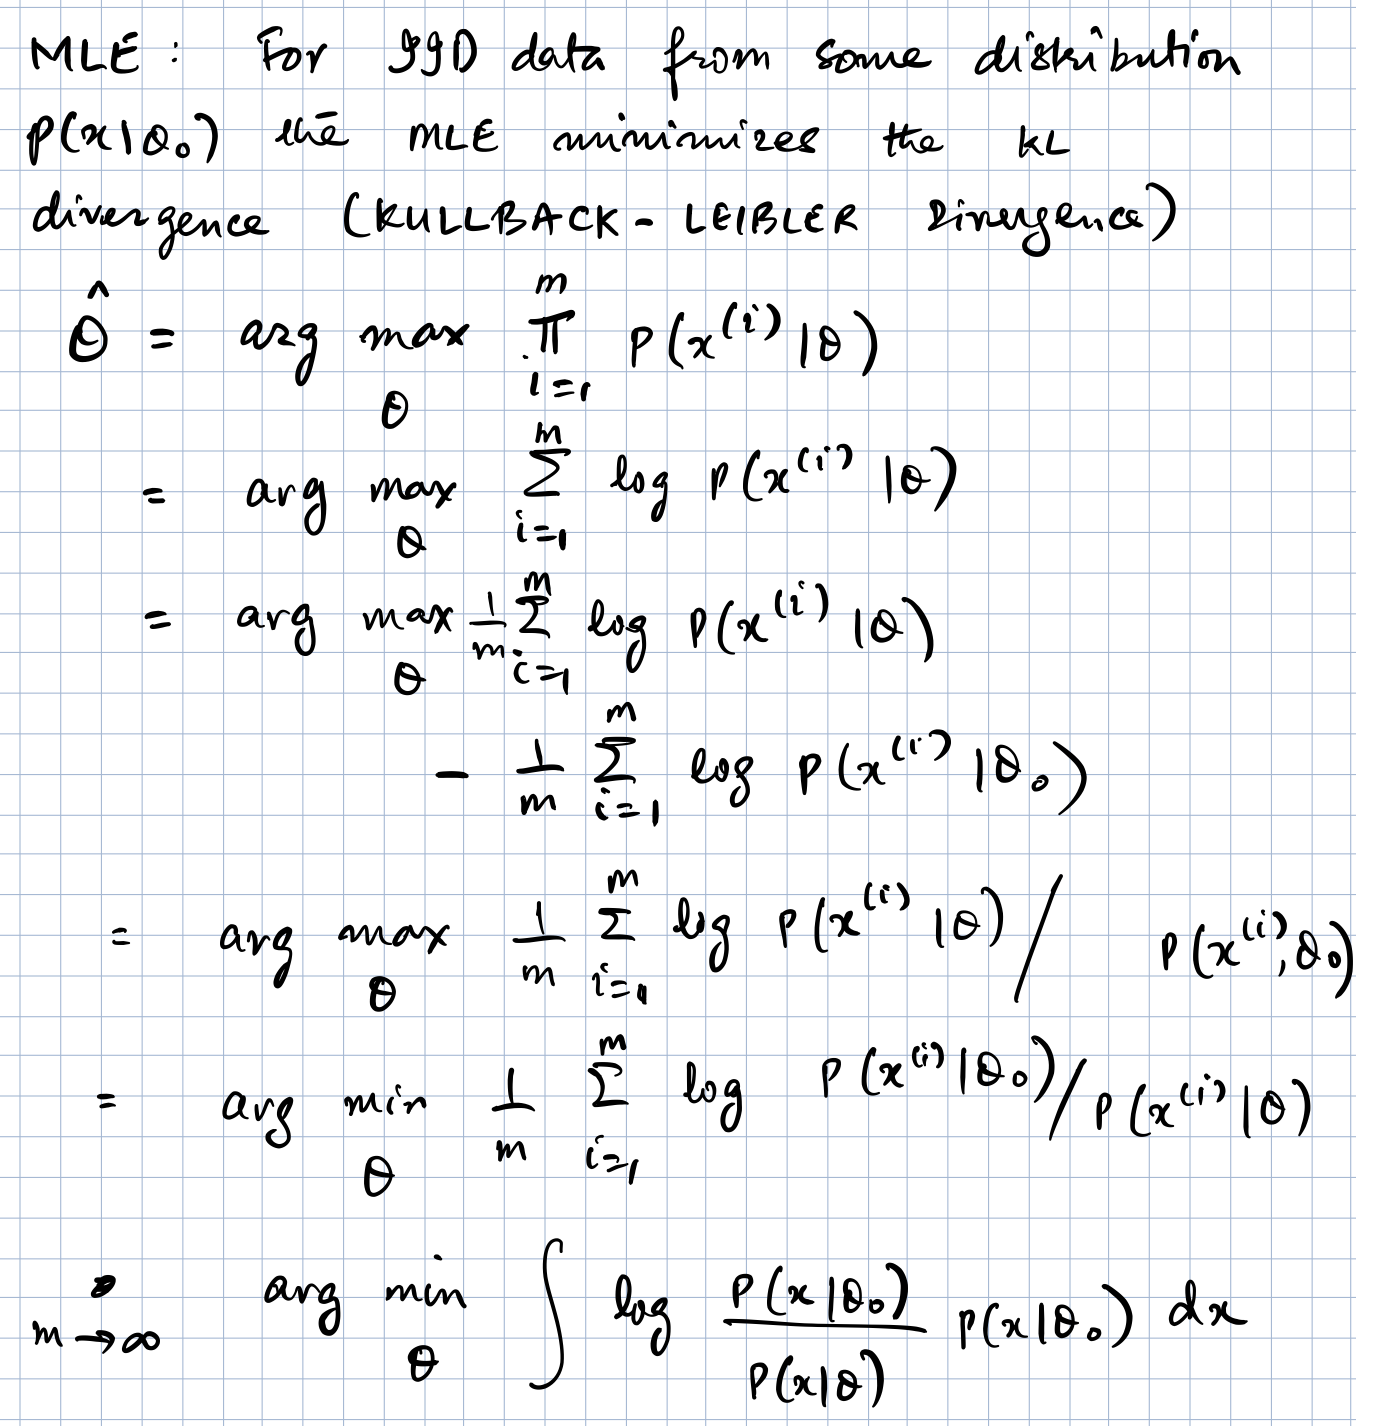 MLE: For IID data from some distribution
P(x|θ₀) the MLE minimizes the KL
divergence (KULLBACK - LEIBLER Divergence)
θ̂ = arg max_θ ∏_{i=1}^{m} P(x^{(i)}|θ)
= arg max_θ ∑_{i=1}^{m} log P(x^{(i)}|θ)
= arg max_θ 1/m ∑_{i=1}^{m} log P(x^{(i)}|θ)
- 1/m ∑_{i=1}^{m} log P(x^{(i)}|θ₀)
= arg max_θ 1/m ∑_{i=1}^{m} log P(x^{(i)}|θ) / P(x^{(i)},θ₀)
= arg min_θ 1/m ∑_{i=1}^{m} log P(x^{(i)}|θ₀) / P(x^{(i)}|θ)
m→∞ arg min_θ ∫ log P(x|θ₀)/P(x|θ) P(x|θ₀) dx